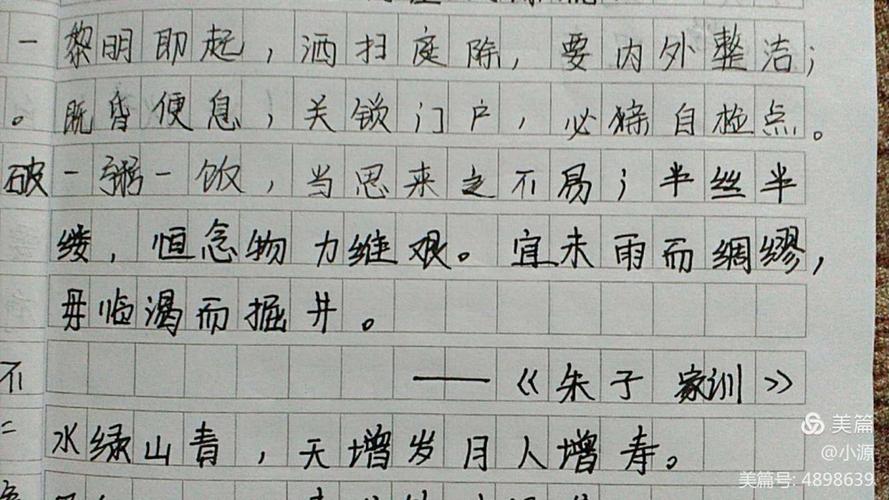 一 黎明即起，洒扫庭除，要内外整洁；
。 既昏便息，关锁门户，必亲自检点。
破 一粥一饭，当思来之不易；半丝半
缕，恒念物力维艰。宜未雨而绸缪，
毋临渴而掘井。
不 ——《朱子家训》
二 水绿山青，天增岁月人增寿。
美篇
@小源
美篇号: 4898639